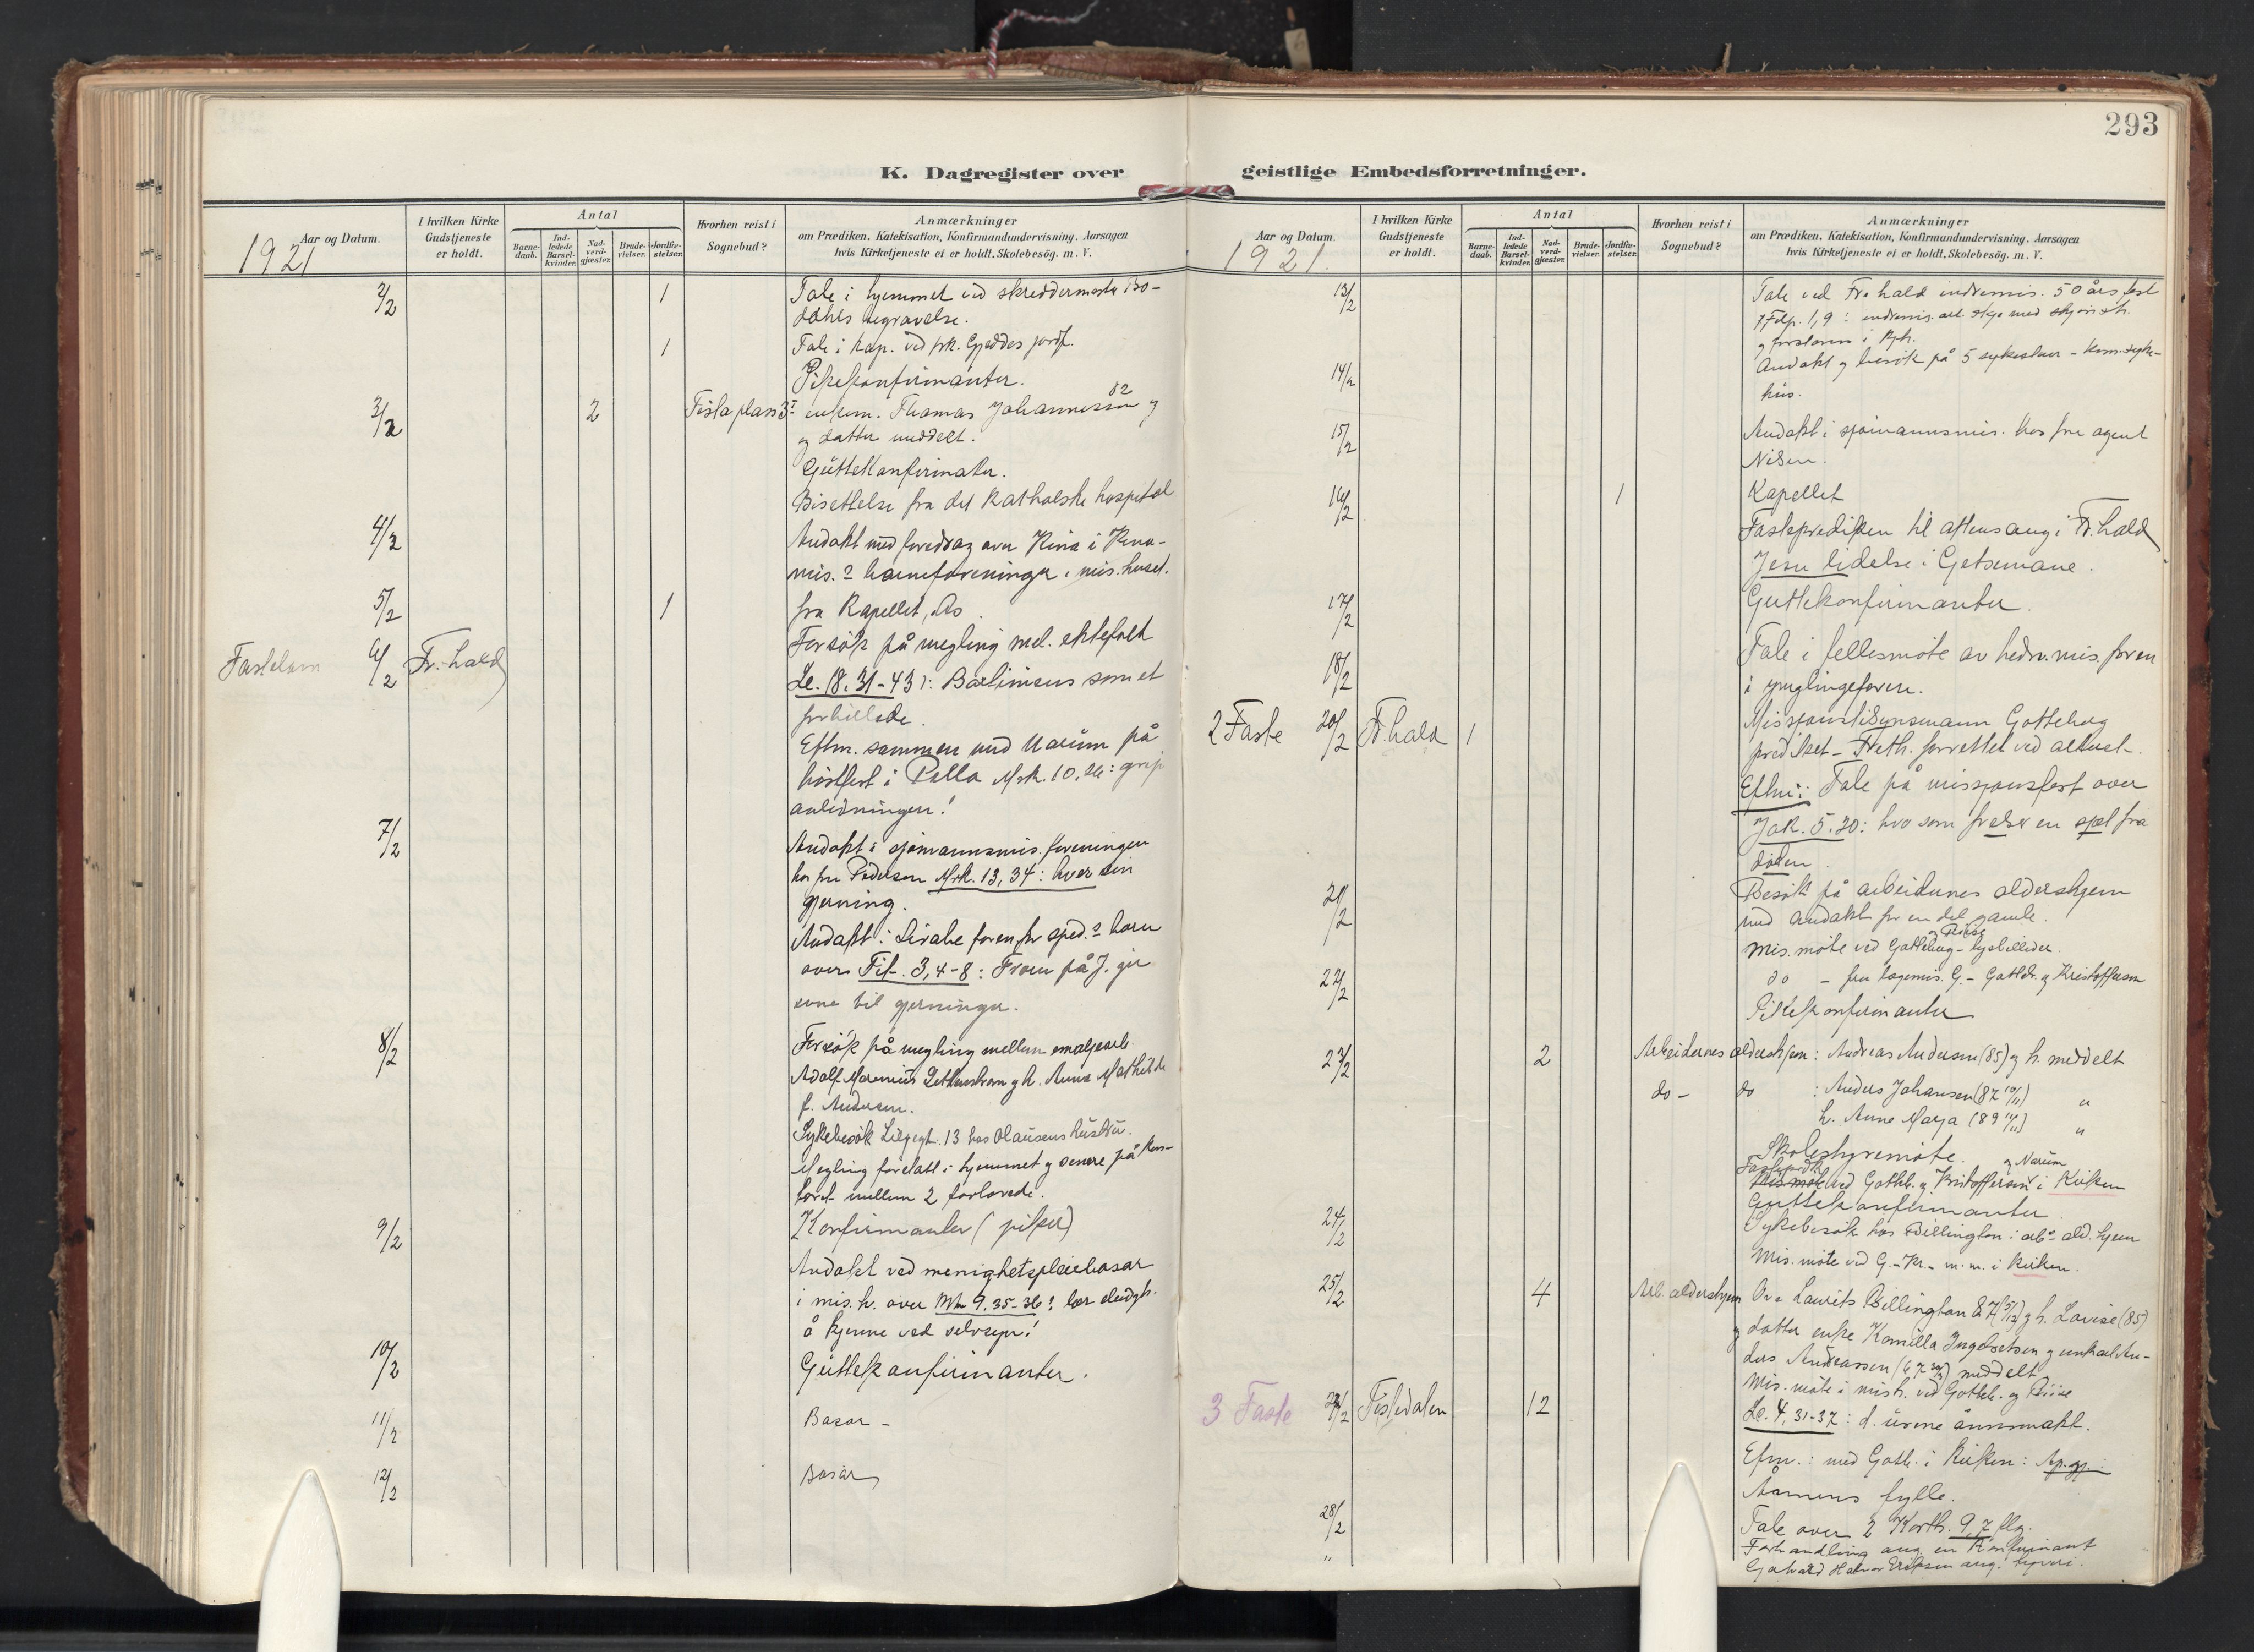 293
K. Dagregister over geistlige Embedsforretninger.
Aar og Datum.
1921
I hvilken Kirke Gudstjeneste er holdt.
Antal
Barnedaab.
Indledede Barselkvinder.
Nadverdgjæster.
Brudevielser.
Jordfæstelser.
Hvorhen reist i Sognebud?
Anmærkninger
om Prædiken, Katekisation, Konfirmandundervisning, Aarsagen
hvis Kirketjeneste ei er holdt, Skolebesøg, m. V.
2/2 1 Tale i hjemmet ved skreddermester Bo-
dahls begravelse.
1 Tale i kap. ved frk. Gjeddes jordf.
Pikekonfirmanter.
3/2 2 Tistaplass 3 enkem. Thomas Johannessen 82 og
og datter meddelt.
Guttekonfirmanter.
Bisettelse fra det katholske hospital
4/2 Andakt med foredrag over Kina i Kina-
mis. barneforeninger i mis.huset.
5/2 1 fra Kapellet, Os
Forsøk på megling mel. ektefolk
Fastelavn 6/2 Fr.hald Lc. 18.31-43: Bartimeus som et
forbillede.
Eftm. sammen med Narum på
høstfest i Pella Mrk. 10. : grip
anledningen!
7/2 Andakt i sjømannsmis.foreningen
hos fru Pedersen Mrk. 13,34: hver sin
gjerning.
Andakt i foren. for sped. barn
over Tit. 3,4-8: Troen på J. gir
evne til gjerninger.
8/2 Forsøk på megling mellem
Adolf h. Anna Mathilde
f. Andersen.
Sykebesøk 13 hos Olausens hustru.
Megling foretatt i hjemmet og senere på kon-
toret mellem 2 forlovede.
9/2 Konfirmanter (piker)
Andakt ved menighetspleiebasar
i mis.h. over Mt 9.35-36:
å kjenne ved selvsyn!
10/2 Guttekonfirmanter.
11/2 Basar -
12/2 Basar
Aar og Datum.
1921.
I hvilken Kirke Gudstjeneste er holdt.
Antal
Barnedaab.
Indledede Barselkvinder.
Nadverdgjæster.
Brudevielser.
Jordfæstelser.
Hvorhen reist i Sognebud?
Anmærkninger
om Prædiken, Katekisation, Konfirmandundervisning, Aarsagen
hvis Kirketjeneste ei er holdt, Skolebesög, m. V.
13/2 Tale ved Fr.hald indremis. 50 års fest
1,9: indremis.
og i
14/2 Andakt og besøk på 5 sykestuer - kom. syke-
hus.
15/2 Andakt i sjømannsmis. hos fru agent
Nilsen.
16/2 1 Kapellet
Fasteprediken til aftensang i Fr.hald
Jesu lidelse i Getsemane.
17/2 Guttekonfirmanter.
18/2 Tale i fellesmøte av hedn.mis.foren
i ynglingeforen.
2 Faste 20/2 Fr.hald 1 Missjonstilsynsmann Gotteberg
prediket - forrettet ved alteret.
Eftm.: Tale på missjonsfest over
Jak. 5.20: hvo som frelser en sjel fra
døden.
21/2 Besøk på arbeidernes aldershjem
med andakt for en del gamle.
Mis.møte ved Gotteberg - lysbilleder.
22/2 do - G. - Gotteb. og Kristoffersen
Pikekonfirmanter
23/2 2 Arbeidernes aldershjem: Andreas Andersen (85) og h. meddelt
do - do : Anders Johansen (87 10/11) "
h. Anne Marja (89 ) "
Skolestyremøte.
og Narum
ved Gotteb. og Kristoffersen i Kirken
24/2 Guttekonfirmanter.
Sykebesøk hos Billington i arb. ald.hjem
Mis.møte ved G. - Kr. - m.m. i kirken.
25/2 4 Arb. aldershjem Ove Laurits Billington 87 og h. Lovise (85)
og datter enke Kamilla Ingebretsen og An-
ders Andreassen (67 ) meddelt
Mis.møte i mish. ved Gotteb. og
3 Faste 27/2 Tistedalen 12 Lc. 4,31-37: d. urene åndsmakt.
Efm.: med Gotteb. i Kirken: Ap.gj.:
fylle.
28/2 Tale over 2 Korth. 9,7 flg.
" Forhandling ang. en konfirmant
Halvor Eriksen ang.